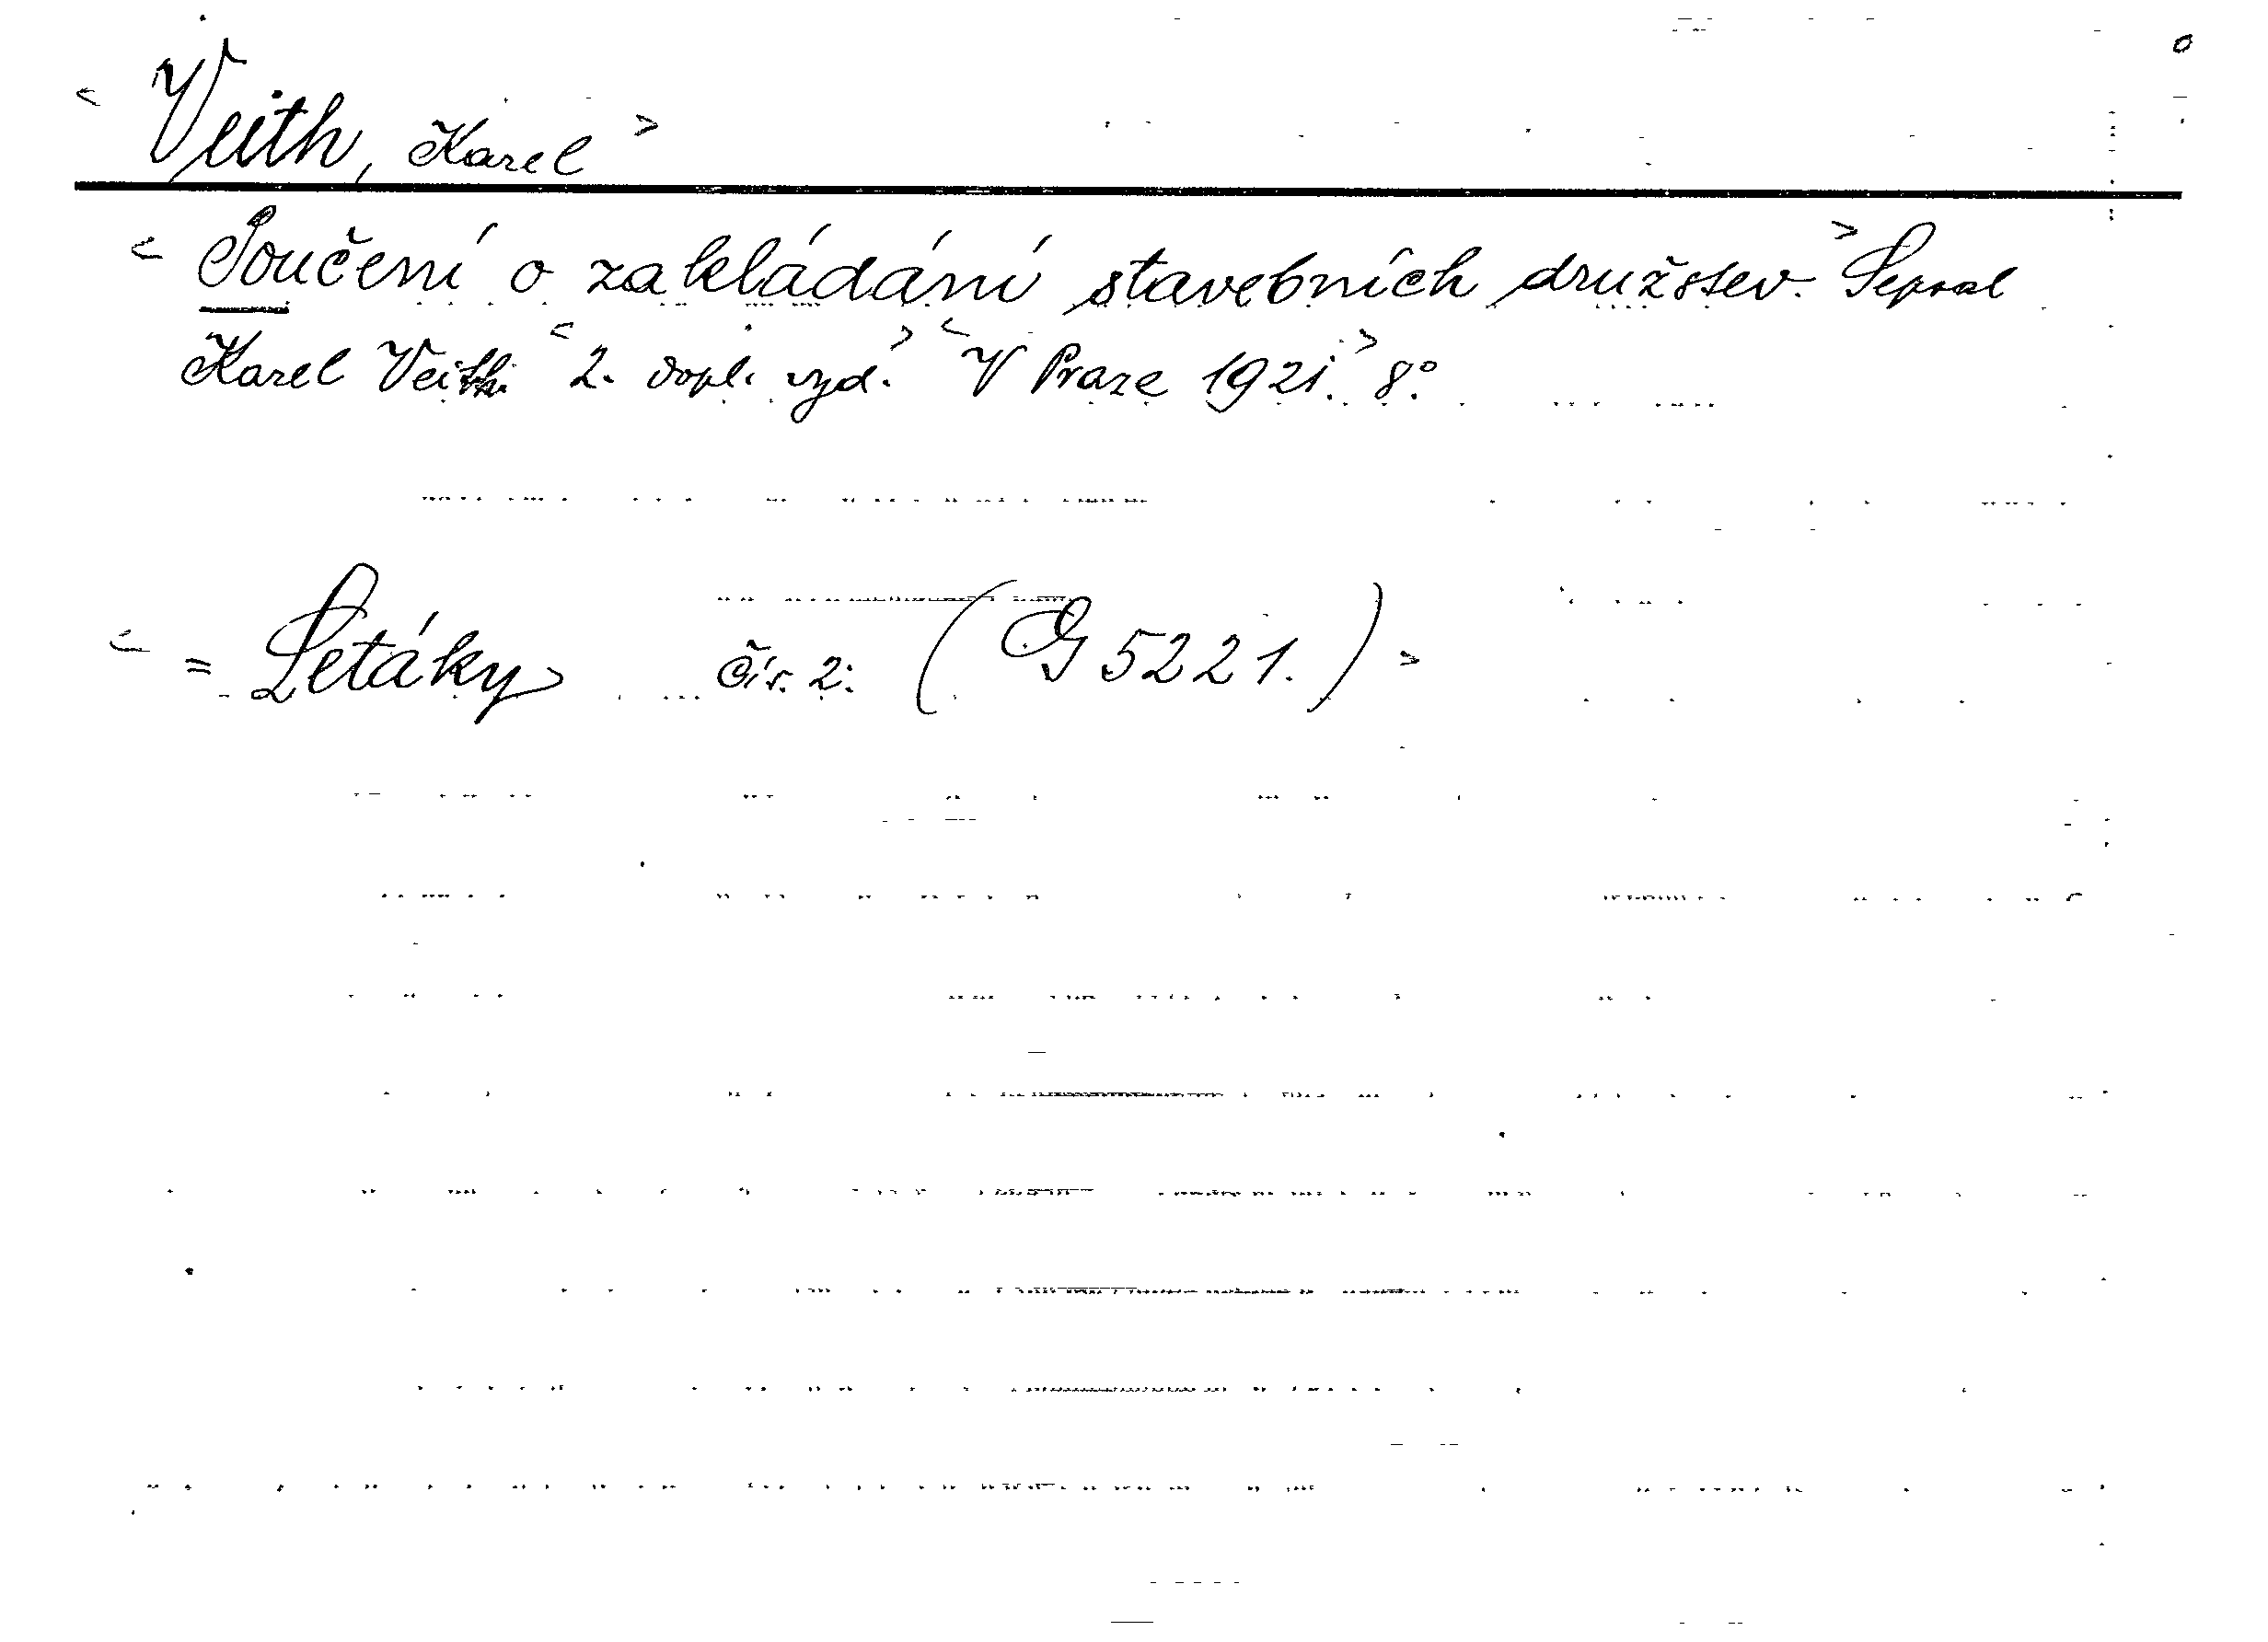 < Veith, Karel >
< Poučení o zakládání stavebních družstev. > Sepsal
Karel Veith. < 2. dopl. vyd. > < V Praze 1921. > 8°.
< = Letáky čís. 2. (G 5221.) >